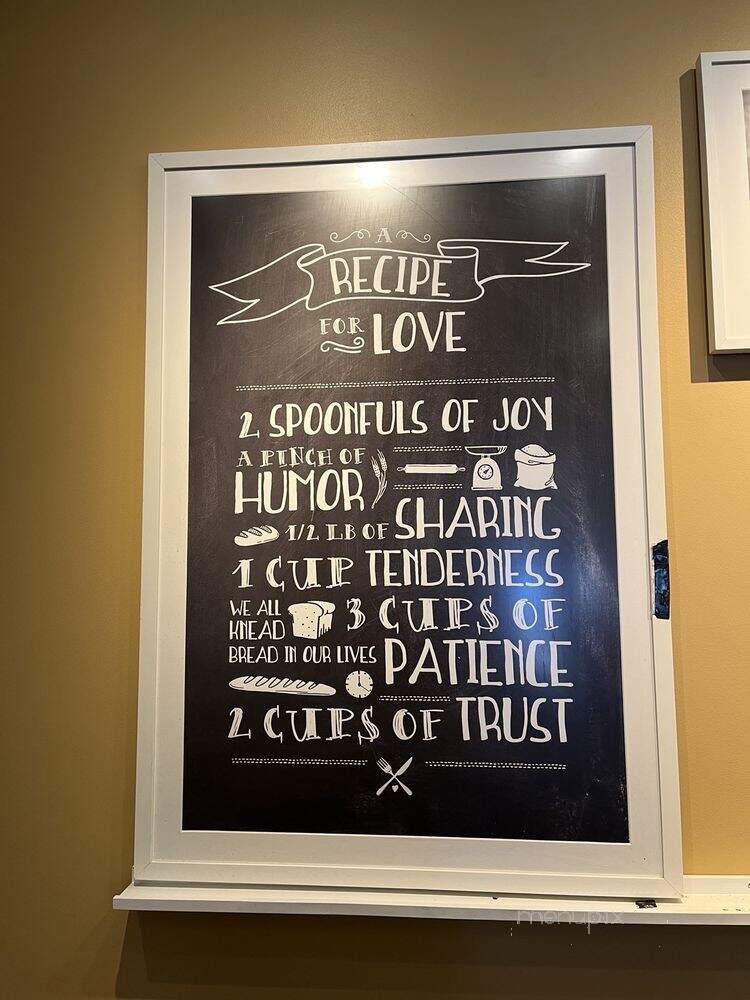 A
RECIPE
FOR LOVE
2 SPOONFULS OF JOY
A PINCH OF
HUMOR
1/2 LB OF SHARING
1 CUP TENDERNESS
WE ALL
KNEAD
BREAD IN OUR LIVES
3 CUPS OF
PATIENCE
2 CUPS OF TRUST
menupix